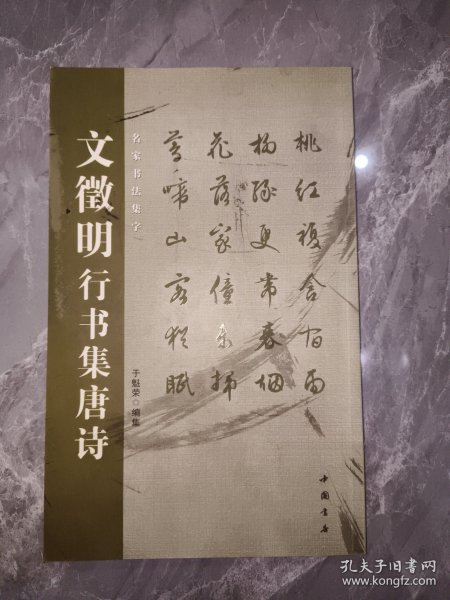 文徵明行书集唐诗
名家书法集字
于魁荣○编集
桃红复含宿雨
柳绿更带春烟
花落家僮未扫
莺啼山客犹眠
中国书店
孔夫子旧书网
www.kongfz.com